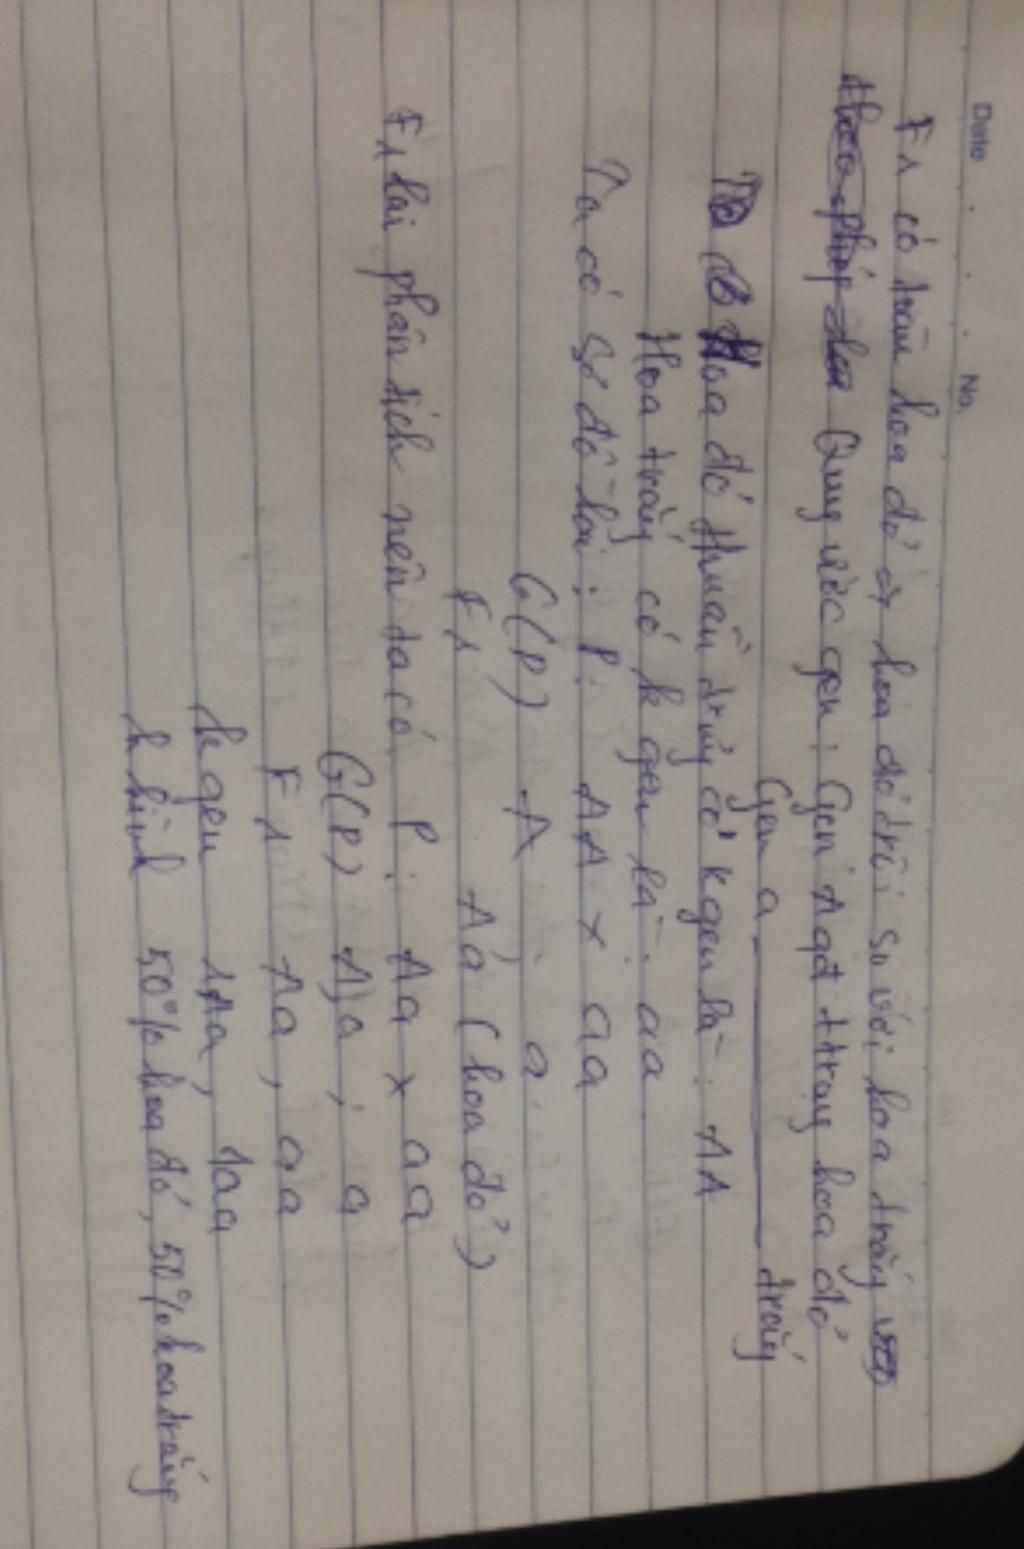 Date . . . No.
F1 có toàn hoa đỏ => hoa đỏ trội so với hoa trắng
Quy ước gen: Gen A qđ t trạng hoa đỏ
Gen a ———— trắng
Hoa đỏ thuần chủng có k gen là: AA
Hoa trắng có k gen là: aa
Ta có sơ đồ lai: P: AA x aa
G(P) A ; a
F1 Aa (hoa đỏ)
F1 lai phân tích nên ta có P: Aa x aa
G(P) A,a ; a
F1 Aa, aa
k gen 1Aa, 1aa
k hình 50% hoa đỏ, 50% hoa trắng